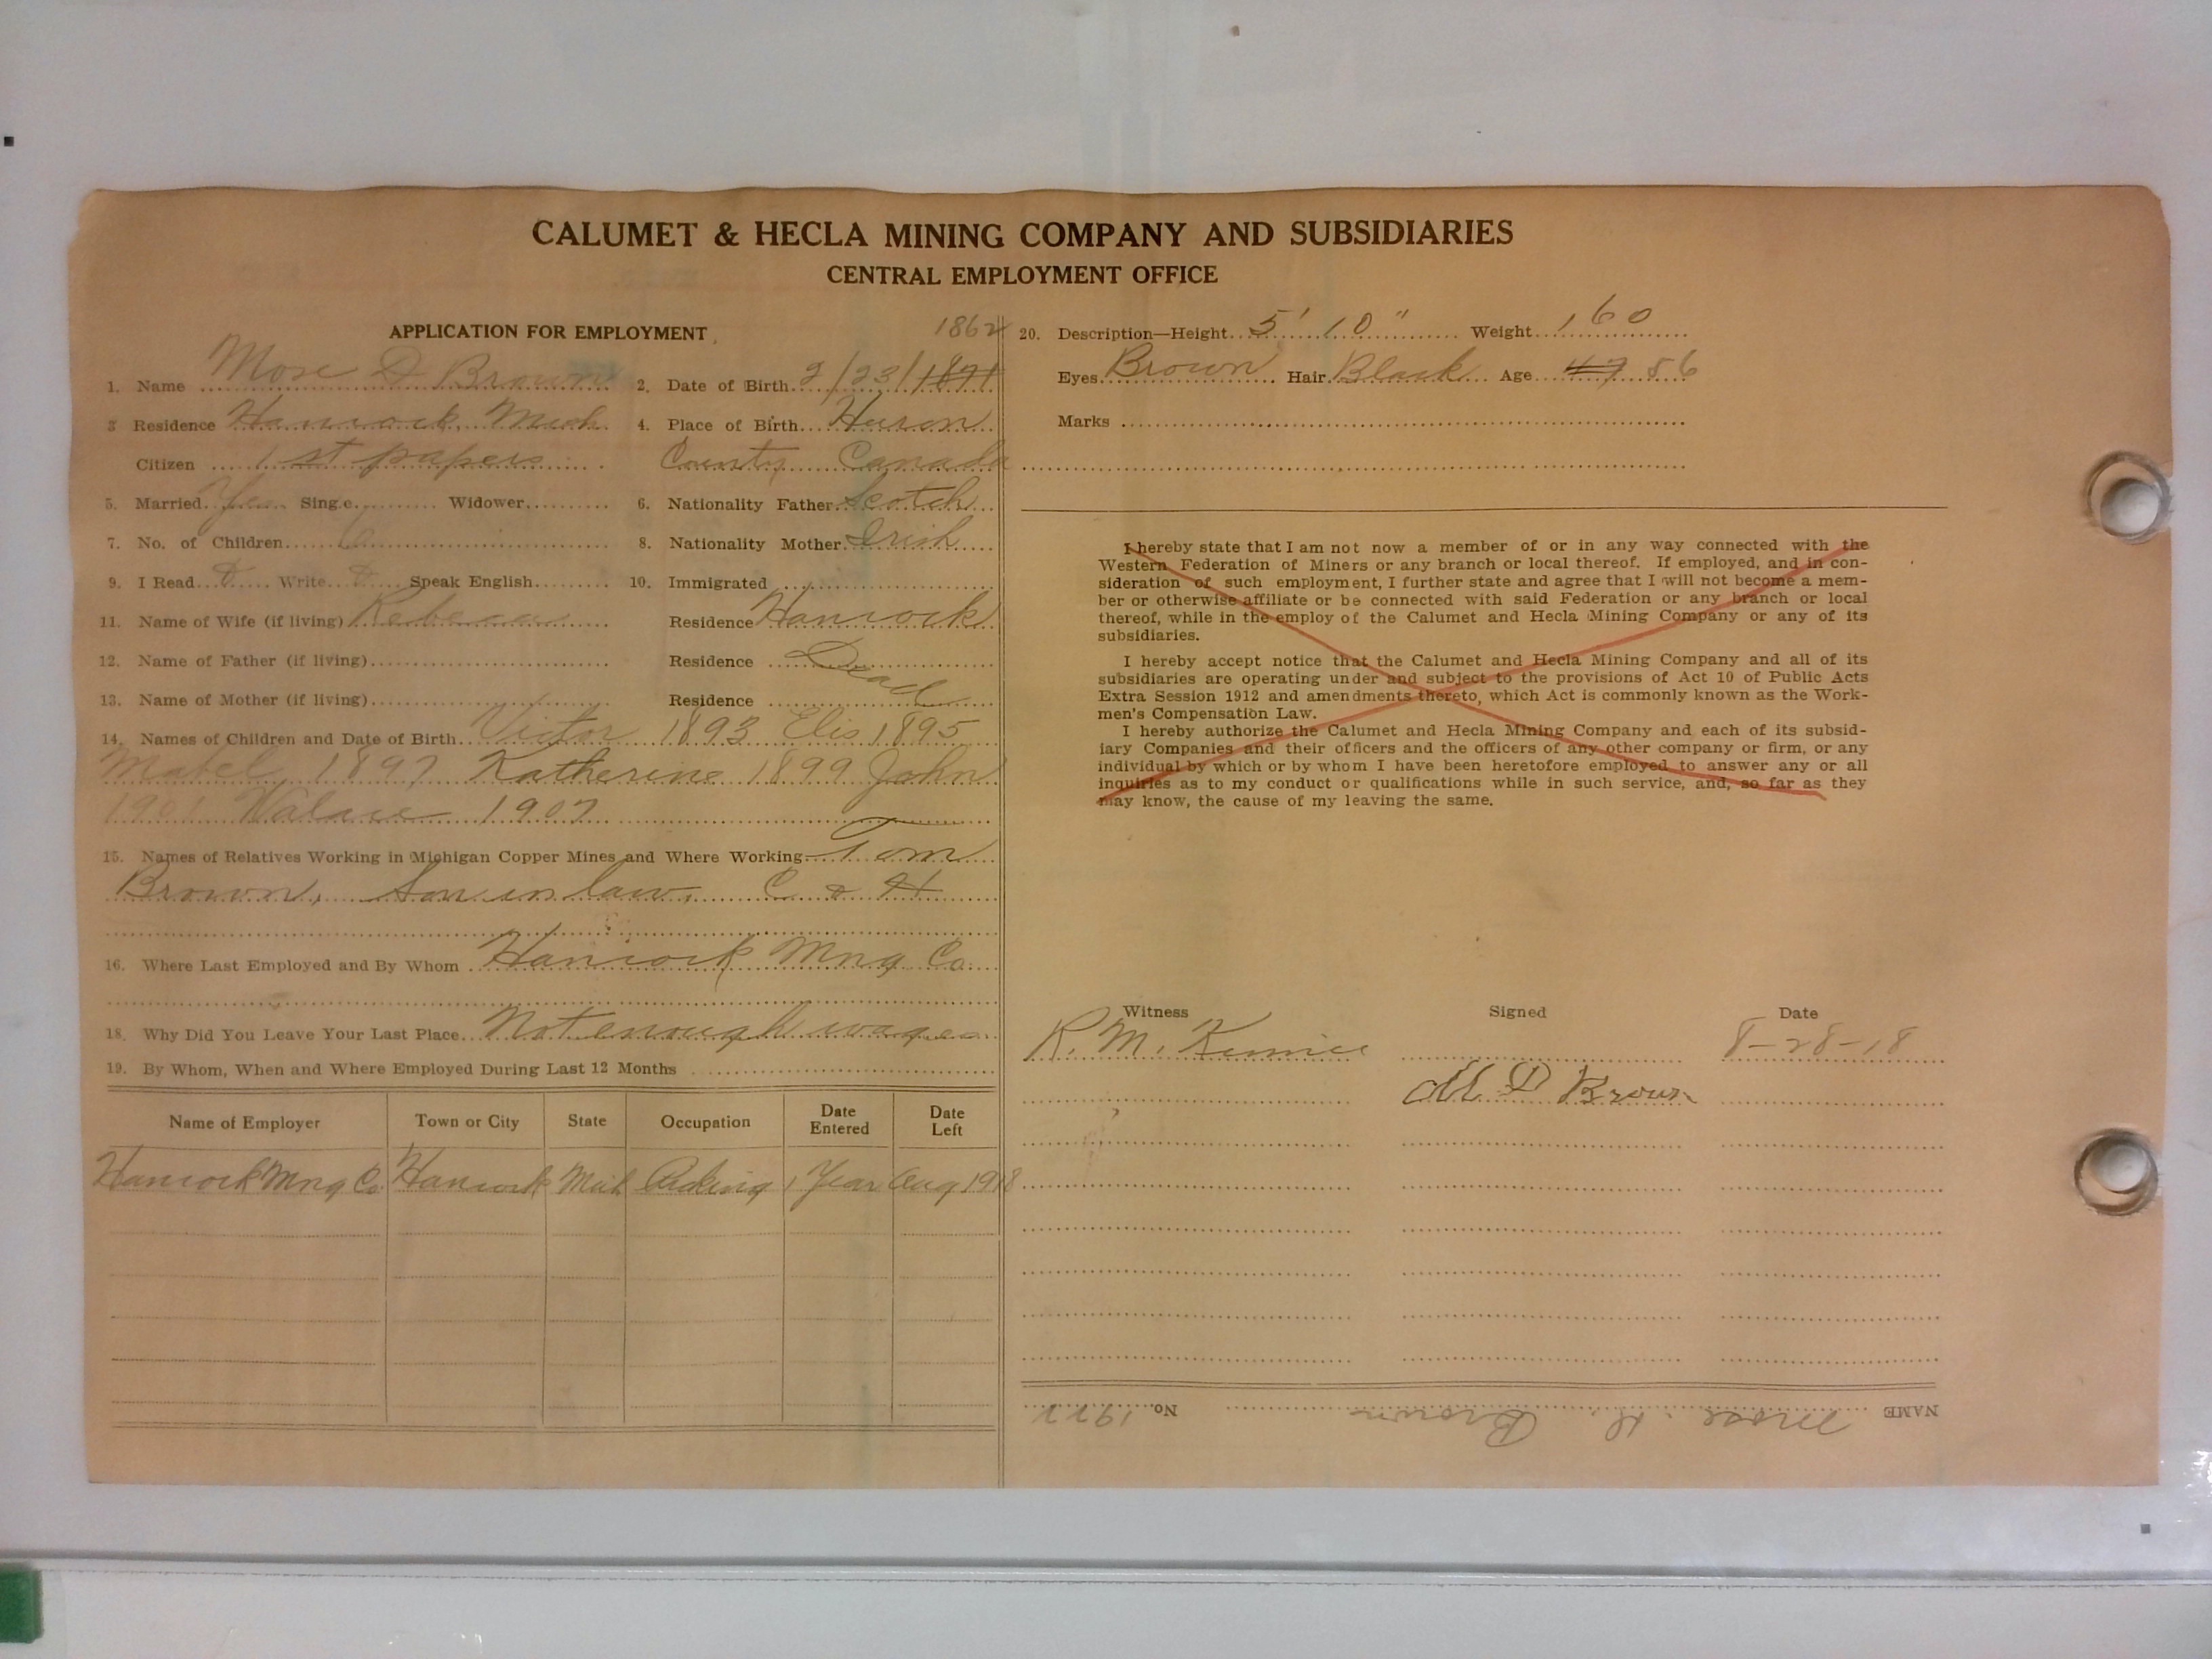 CALUMET & HECLA MINING COMPANY AND SUBSIDIARIES
CENTRAL EMPLOYMENT OFFICE
APPLICATION FOR EMPLOYMENT
1862
1. Name Mose D Brown 2. Date of Birth 2/23/1871
3 Residence Hancock Mich 4. Place of Birth Huron
Citizen 1st papers County Canada
5. Married Yes Single Widower 6. Nationality Father Scotch
7. No. of Children 6 8. Nationality Mother Irish
9. I Read Write Speak English 10. Immigrated
11. Name of Wife (if living) Rebecca Residence Hancock
12. Name of Father (if living) Residence Dead
13. Name of Mother (if living) Residence
14. Names of Children and Date of Birth Victor 1893 Elis 1895
Mabel 1897 Katherine 1899 John
1901 Walace 1907
15. Names of Relatives Working in Michigan Copper Mines and Where Working Tom
Brown, Son in law, C & H
16. Where Last Employed and By Whom Hancock Mng Co.
18. Why Did You Leave Your Last Place Not enough wages
19. By Whom, When and Where Employed During Last 12 Months
Name of Employer Town or City State Occupation Date Entered Date Left
Hancock Mng Co Hancock Mich 1 Year Aug 1918
20. Description—Height 5' 10" Weight 160
Eyes Brown Hair Black Age 47 56
Marks
I hereby state that I am not now a member of or in any way connected with the
Western Federation of Miners or any branch or local thereof. If employed, and in con-
sideration of such employment, I further state and agree that I will not become a mem-
ber or otherwise affiliate or be connected with said Federation or any branch or local
thereof, while in the employ of the Calumet and Hecla Mining Company or any of its
subsidiaries.
I hereby accept notice that the Calumet and Hecla Mining Company and all of its
subsidiaries are operating under and subject to the provisions of Act 10 of Public Acts
Extra Session 1912 and amendments thereto, which Act is commonly known as the Work-
men's Compensation Law.
I hereby authorize the Calumet and Hecla Mining Company and each of its subsid-
iary Companies and their officers and the officers of any other company or firm, or any
individual by which or by whom I have been heretofore employed to answer any or all
inquiries as to my conduct or qualifications while in such service, and, so far as they
may know, the cause of my leaving the same.
Witness Signed Date
R. M. 8-28-18
M D Brown
NAME Mose D. Brown No. 1922